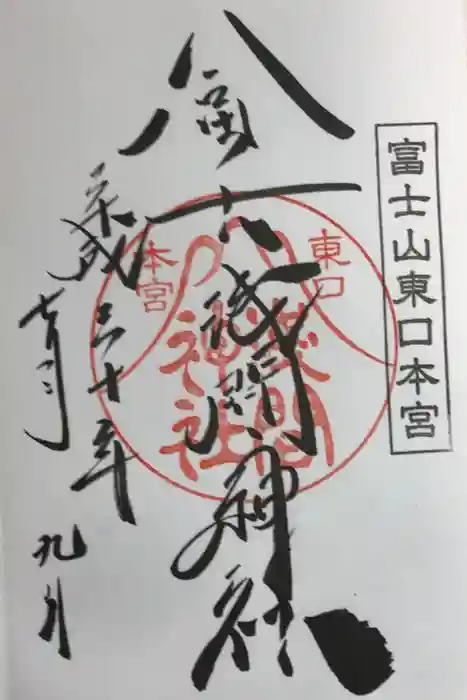 富士山東口本宮
冨士浅間神社
平成三十年
九月
東口
本宮
浅間
神社